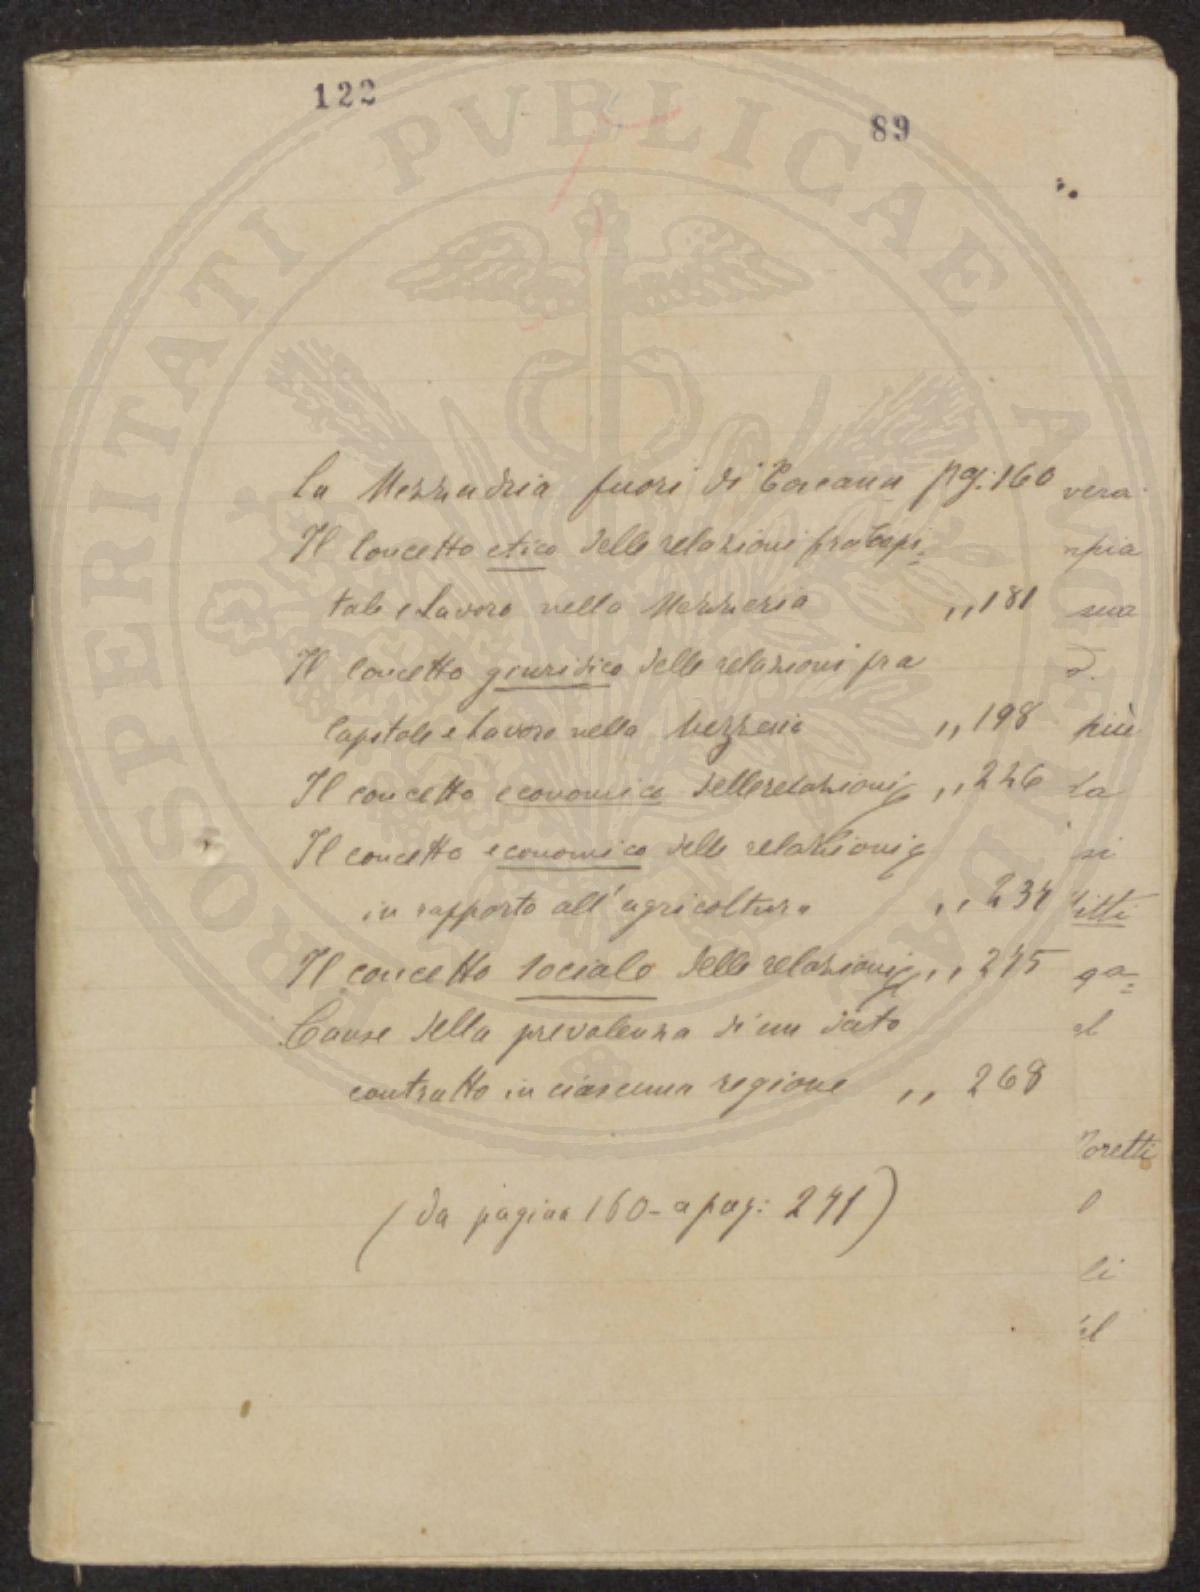 122
89
La Mezzadria fuori di Toscana pg: 160
Il Concetto etico delle relazioni fra Capi=
tale e Lavoro nella Mezzeria ,, 181
Il Concetto giuridico delle relazioni fra
Capitale e Lavoro nella Mezzeria ,, 198
Il concetto economico delle relazioni ,, 226
Il concetto economico delle relazioni
in rapporto all'agricoltura ,, 234
Il concetto sociale delle relazioni ,, 245
Cause della prevalenza di un dato
contratto in ciascuna regione ,, 268
(da pagina 160 - a pag: 271)
vera
npia
sua
più
La
si
ditti
ga=
el
Moretti
li
el
PROSPERITATI PVBLICAE AVGENDAE